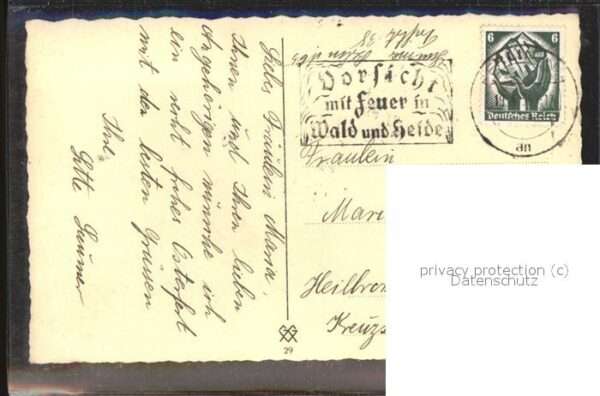 Liebes Fräulein Maria.
Ihnen und Ihren lieben
Angehörigen wünsche ich
ein recht frohes Osterfest
mit den besten Grüssen
Ihre
Gitte
29
Vorsicht
mit Feuer in
Wald und Heide
6 6
Deutsches Reich
an
Fräulein
Mari
Heilbron
Kreuzs
privacy protection (c)
Datenschutz